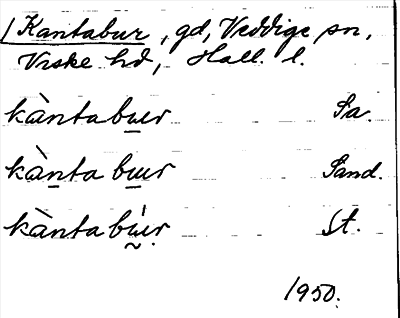 Kantabur, gd, Veddige sn,
Viske hd, Hall. l.
kàntabu̲r Sa.
kàn̲tabu̲r Sand.
kàntabṵ́ṛ St.
1950.